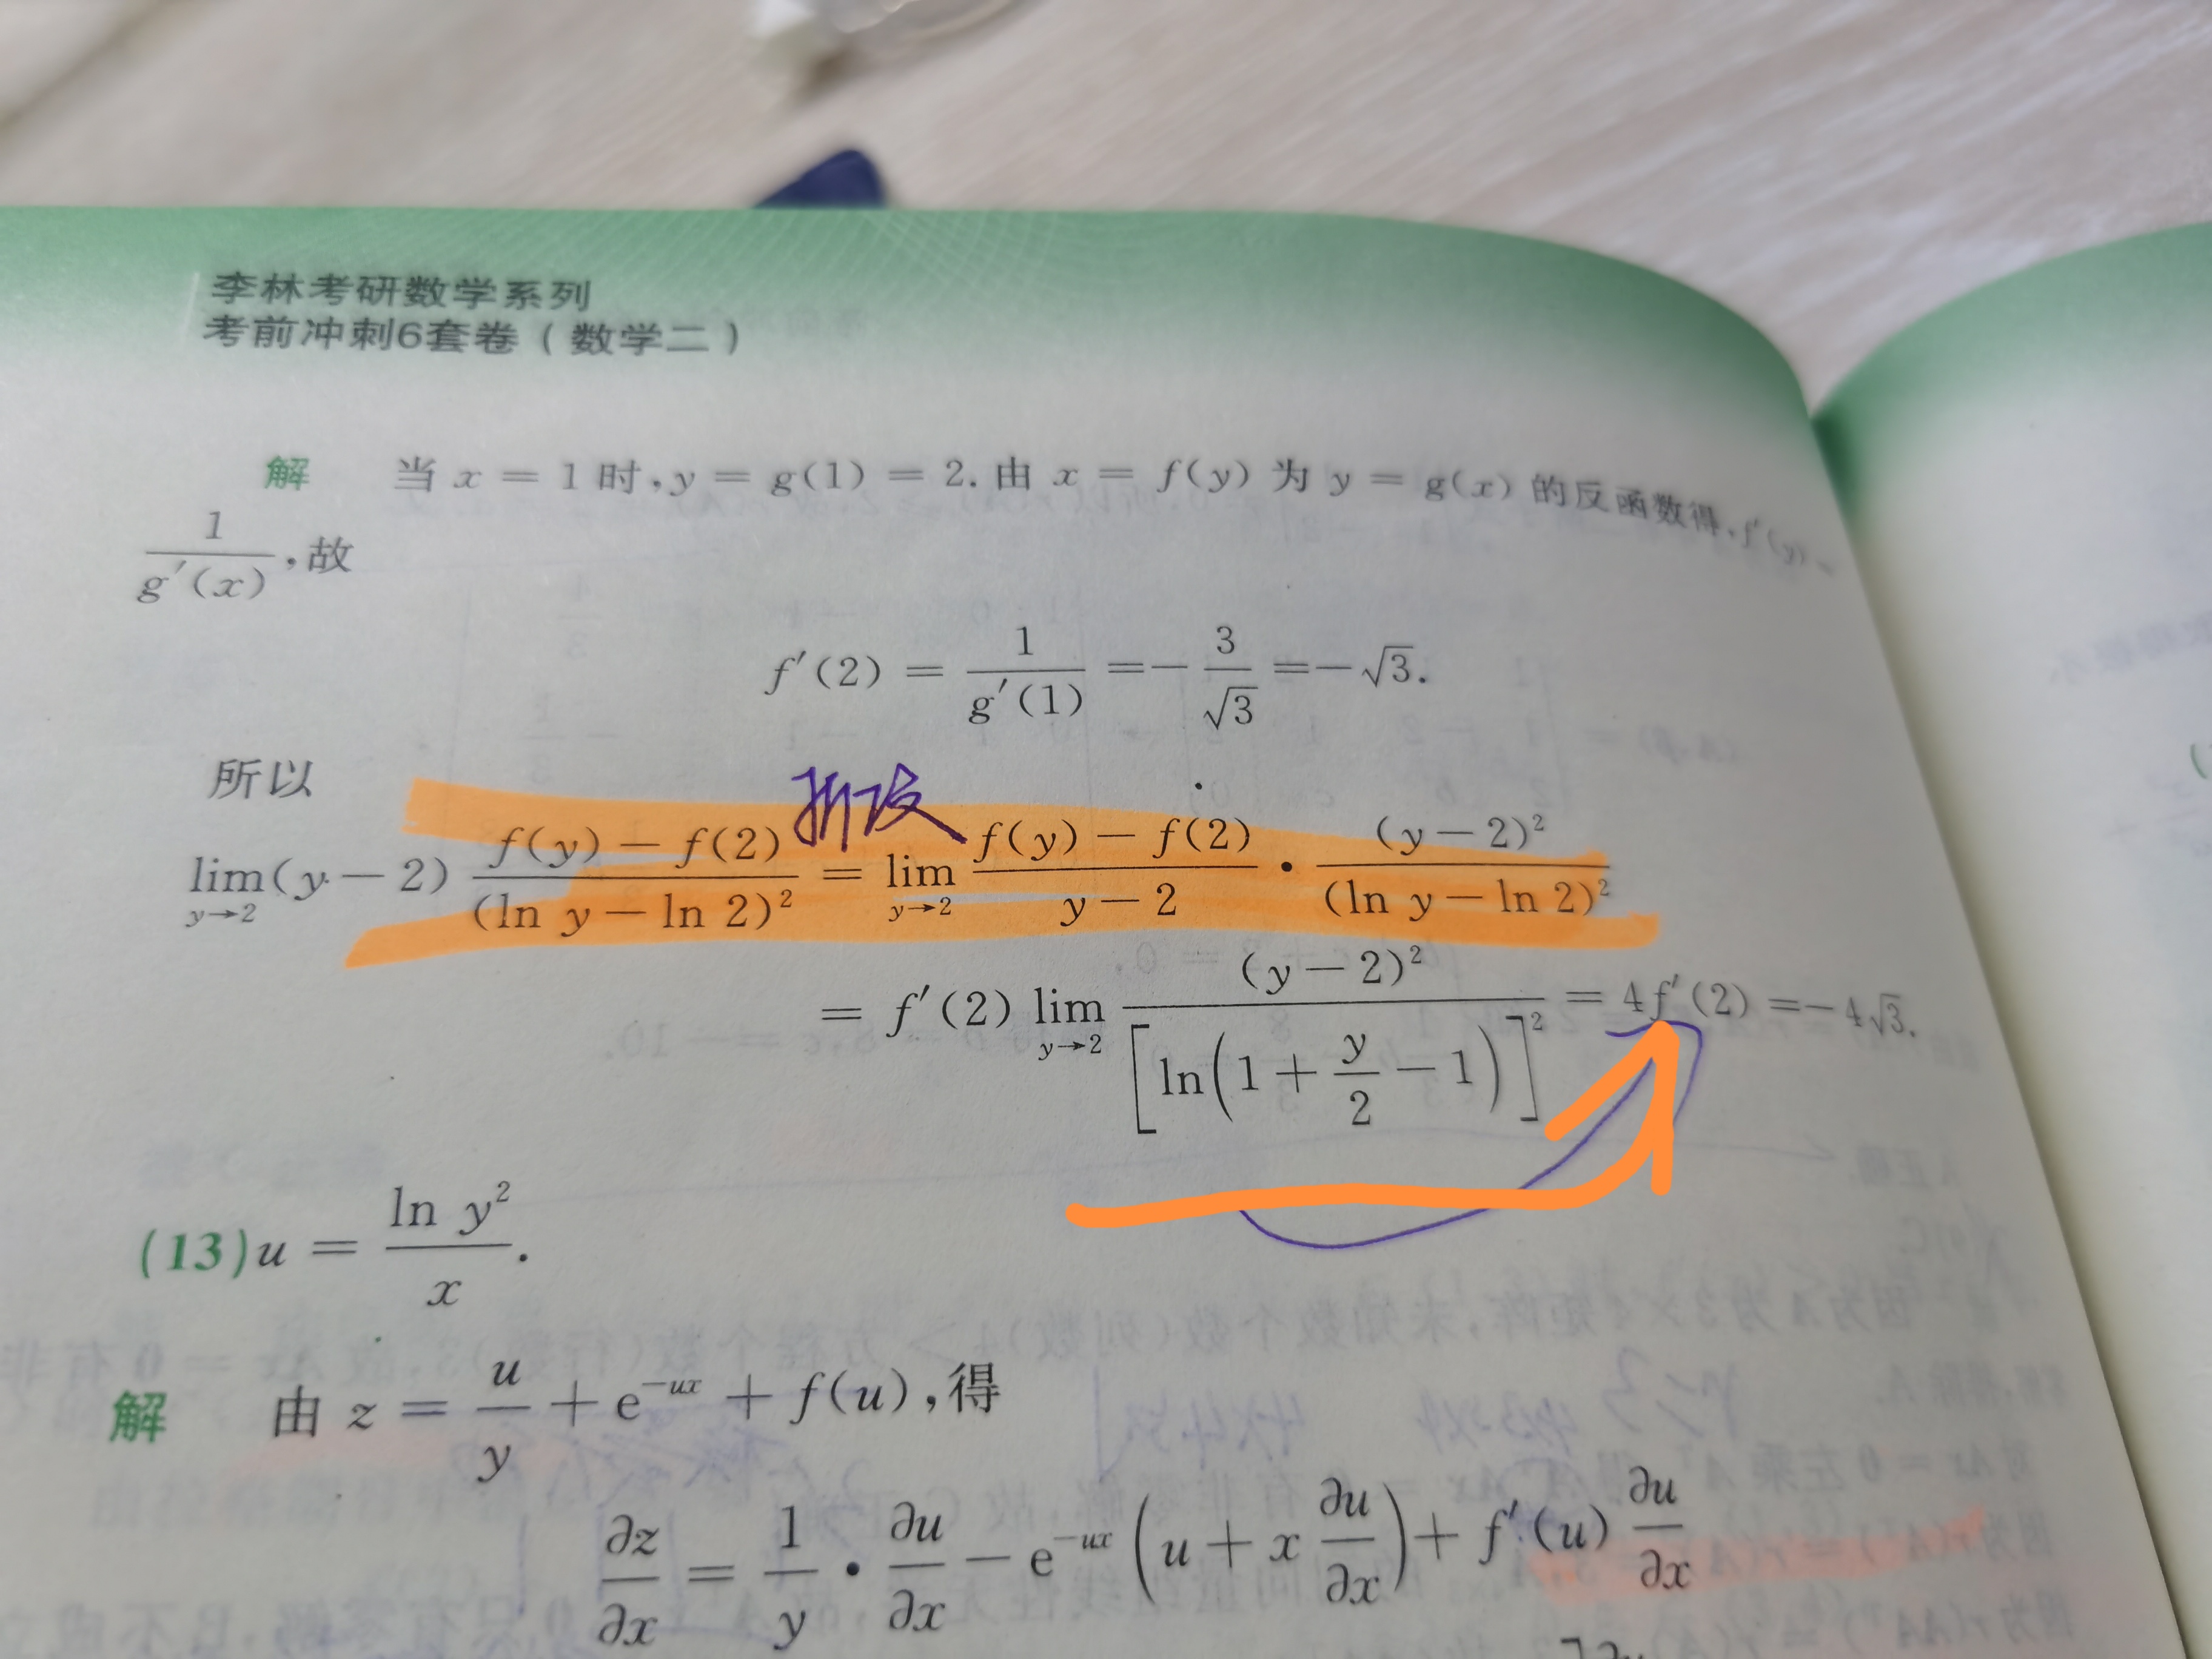 李林考研数学系列
考前冲刺6套卷（数学二）
解 当 x = 1 时, y = g(1) = 2. 由 x = f(y) 为 y = g(x) 的反函数得, f′(y) =
1/g′(x), 故
f′(2) = 1/g′(1) = −3/√3 = −√3.
所以
拆段
lim_{y→2} (y − 2) (f(y) − f(2))/(ln y − ln 2)² = lim_{y→2} (f(y) − f(2))/(y − 2) · (y − 2)²/(ln y − ln 2)²
= f′(2) lim_{y→2} (y − 2)²/[ln(1 + y/2 − 1)]² = 4f′(2) = −4√3.
(13) u = ln y²/x.
解 由 z = u/y + e^{−ux} + f(u), 得
∂z/∂x = 1/y · ∂u/∂x − e^{−ux}(u + x ∂u/∂x) + f′(u) ∂u/∂x